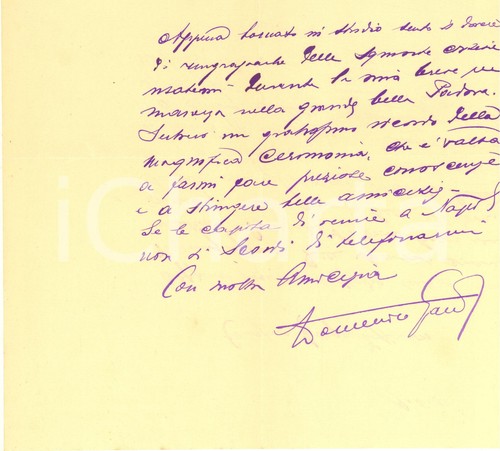 Appena tornato in studio sento il dovere
di ringraziarla delle squisite cortesie
usatemi durante la mia breve per
manenza nella grande bella Padova.
Serberò un gratissimo ricordo della
magnifica cerimonia, che è valsa
a farmi fare preziose conoscenze
e a stringere belle amicizie.
Se le capita di venire a Napoli
non si scordi di telefonarmi
Con molta amicizia
Domenico
iCharta